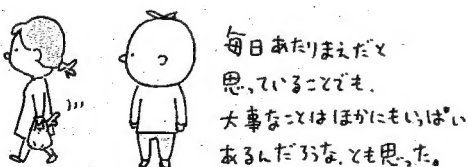 毎日あたりまえだと
思っていることでも、
大事なことはほかにもいっぱい
あるんだろうな、とも思った。